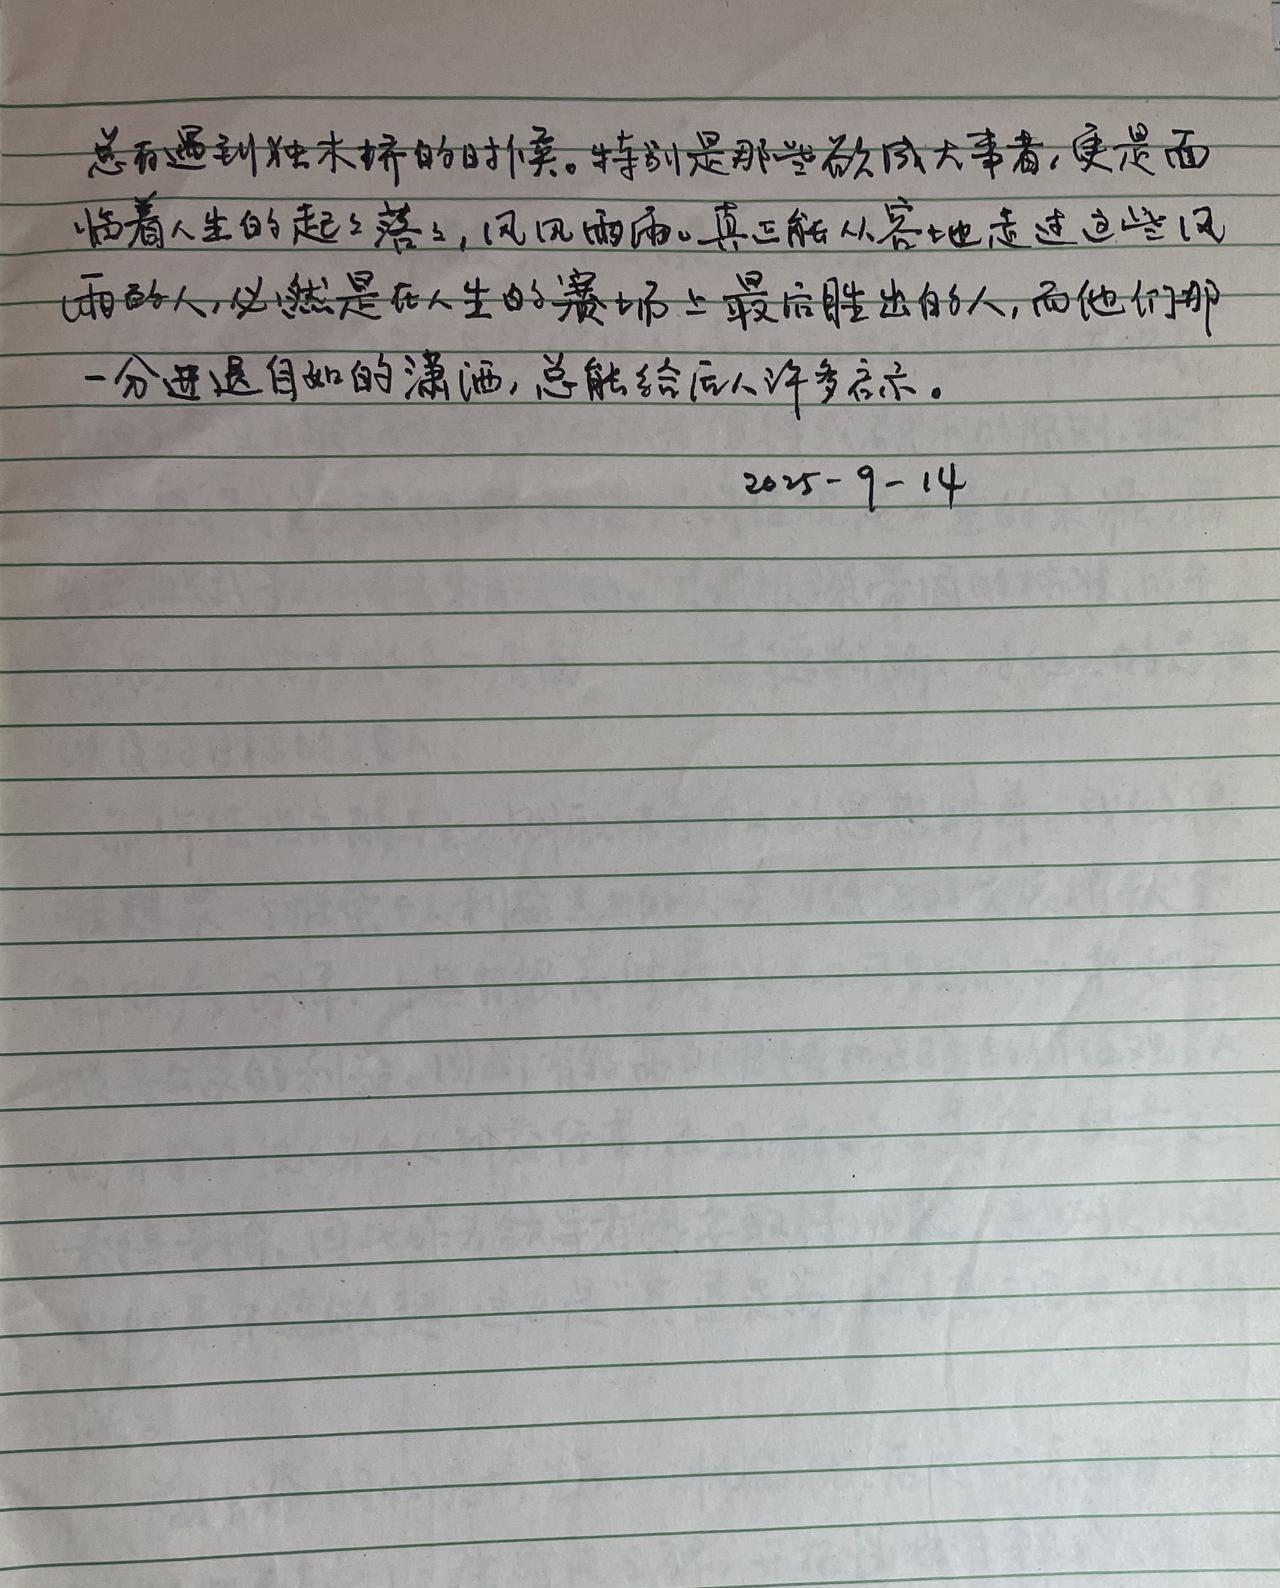 总有遇到独木桥的时候。特别是那些欲成大事者，更是面
临着人生的起起落落，风风雨雨。真正能从容地走过这些风
雨的人，必然是在人生的赛场上最后胜出的人，而他们那
一分进退自如的潇洒，总能给后人许多启示。
2025-9-14